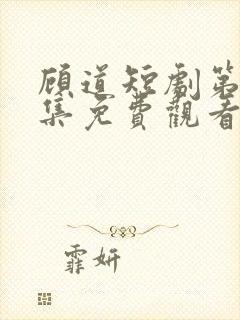 顾道短劇第
集免費觀看
霏妍